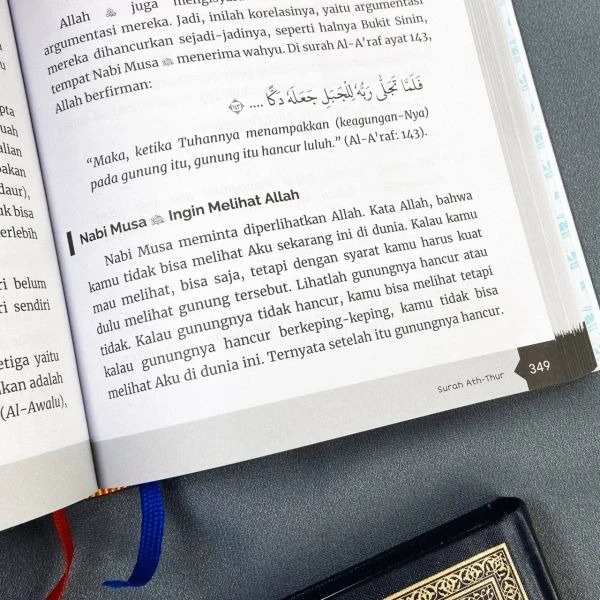 pta
uah
alian
pakan
daur),
uk bisa
erlebih
ri belum
ri sendiri
etiga yaitu
ikan adalah
(Al-Awalu),
Allah ﷻ juga
argumentasi mereka. Jadi, inilah korelasinya, yaitu argumentasi
mereka dihancurkan sejadi-jadinya, seperti halnya Bukit Sinin,
tempat Nabi Musa menerima wahyu. Di surah Al-A’raf ayat 143,
Allah berfirman:
فَلَمَّا تَجَلّٰى رَبُّهٗ لِلْجَبَلِ جَعَلَهٗ دَكًّا .... ﴿١٤٣﴾
“Maka, ketika Tuhannya menampakkan (keagungan-Nya)
pada gunung itu, gunung itu hancur luluh.” (Al-A’raf: 143).
Nabi Musa Ingin Melihat Allah
Nabi Musa meminta diperlihatkan Allah. Kata Allah, bahwa
kamu tidak bisa melihat Aku sekarang ini di dunia. Kalau kamu
mau melihat, bisa saja, tetapi dengan syarat kamu harus kuat
dulu melihat gunung tersebut. Lihatlah gunungnya hancur atau
tidak. Kalau gunungnya tidak hancur, kamu bisa melihat tetapi
kalau gunungnya hancur berkeping-keping, kamu tidak bisa
melihat Aku di dunia ini. Ternyata setelah itu gunungnya hancur.
Surah Ath-Thur 349